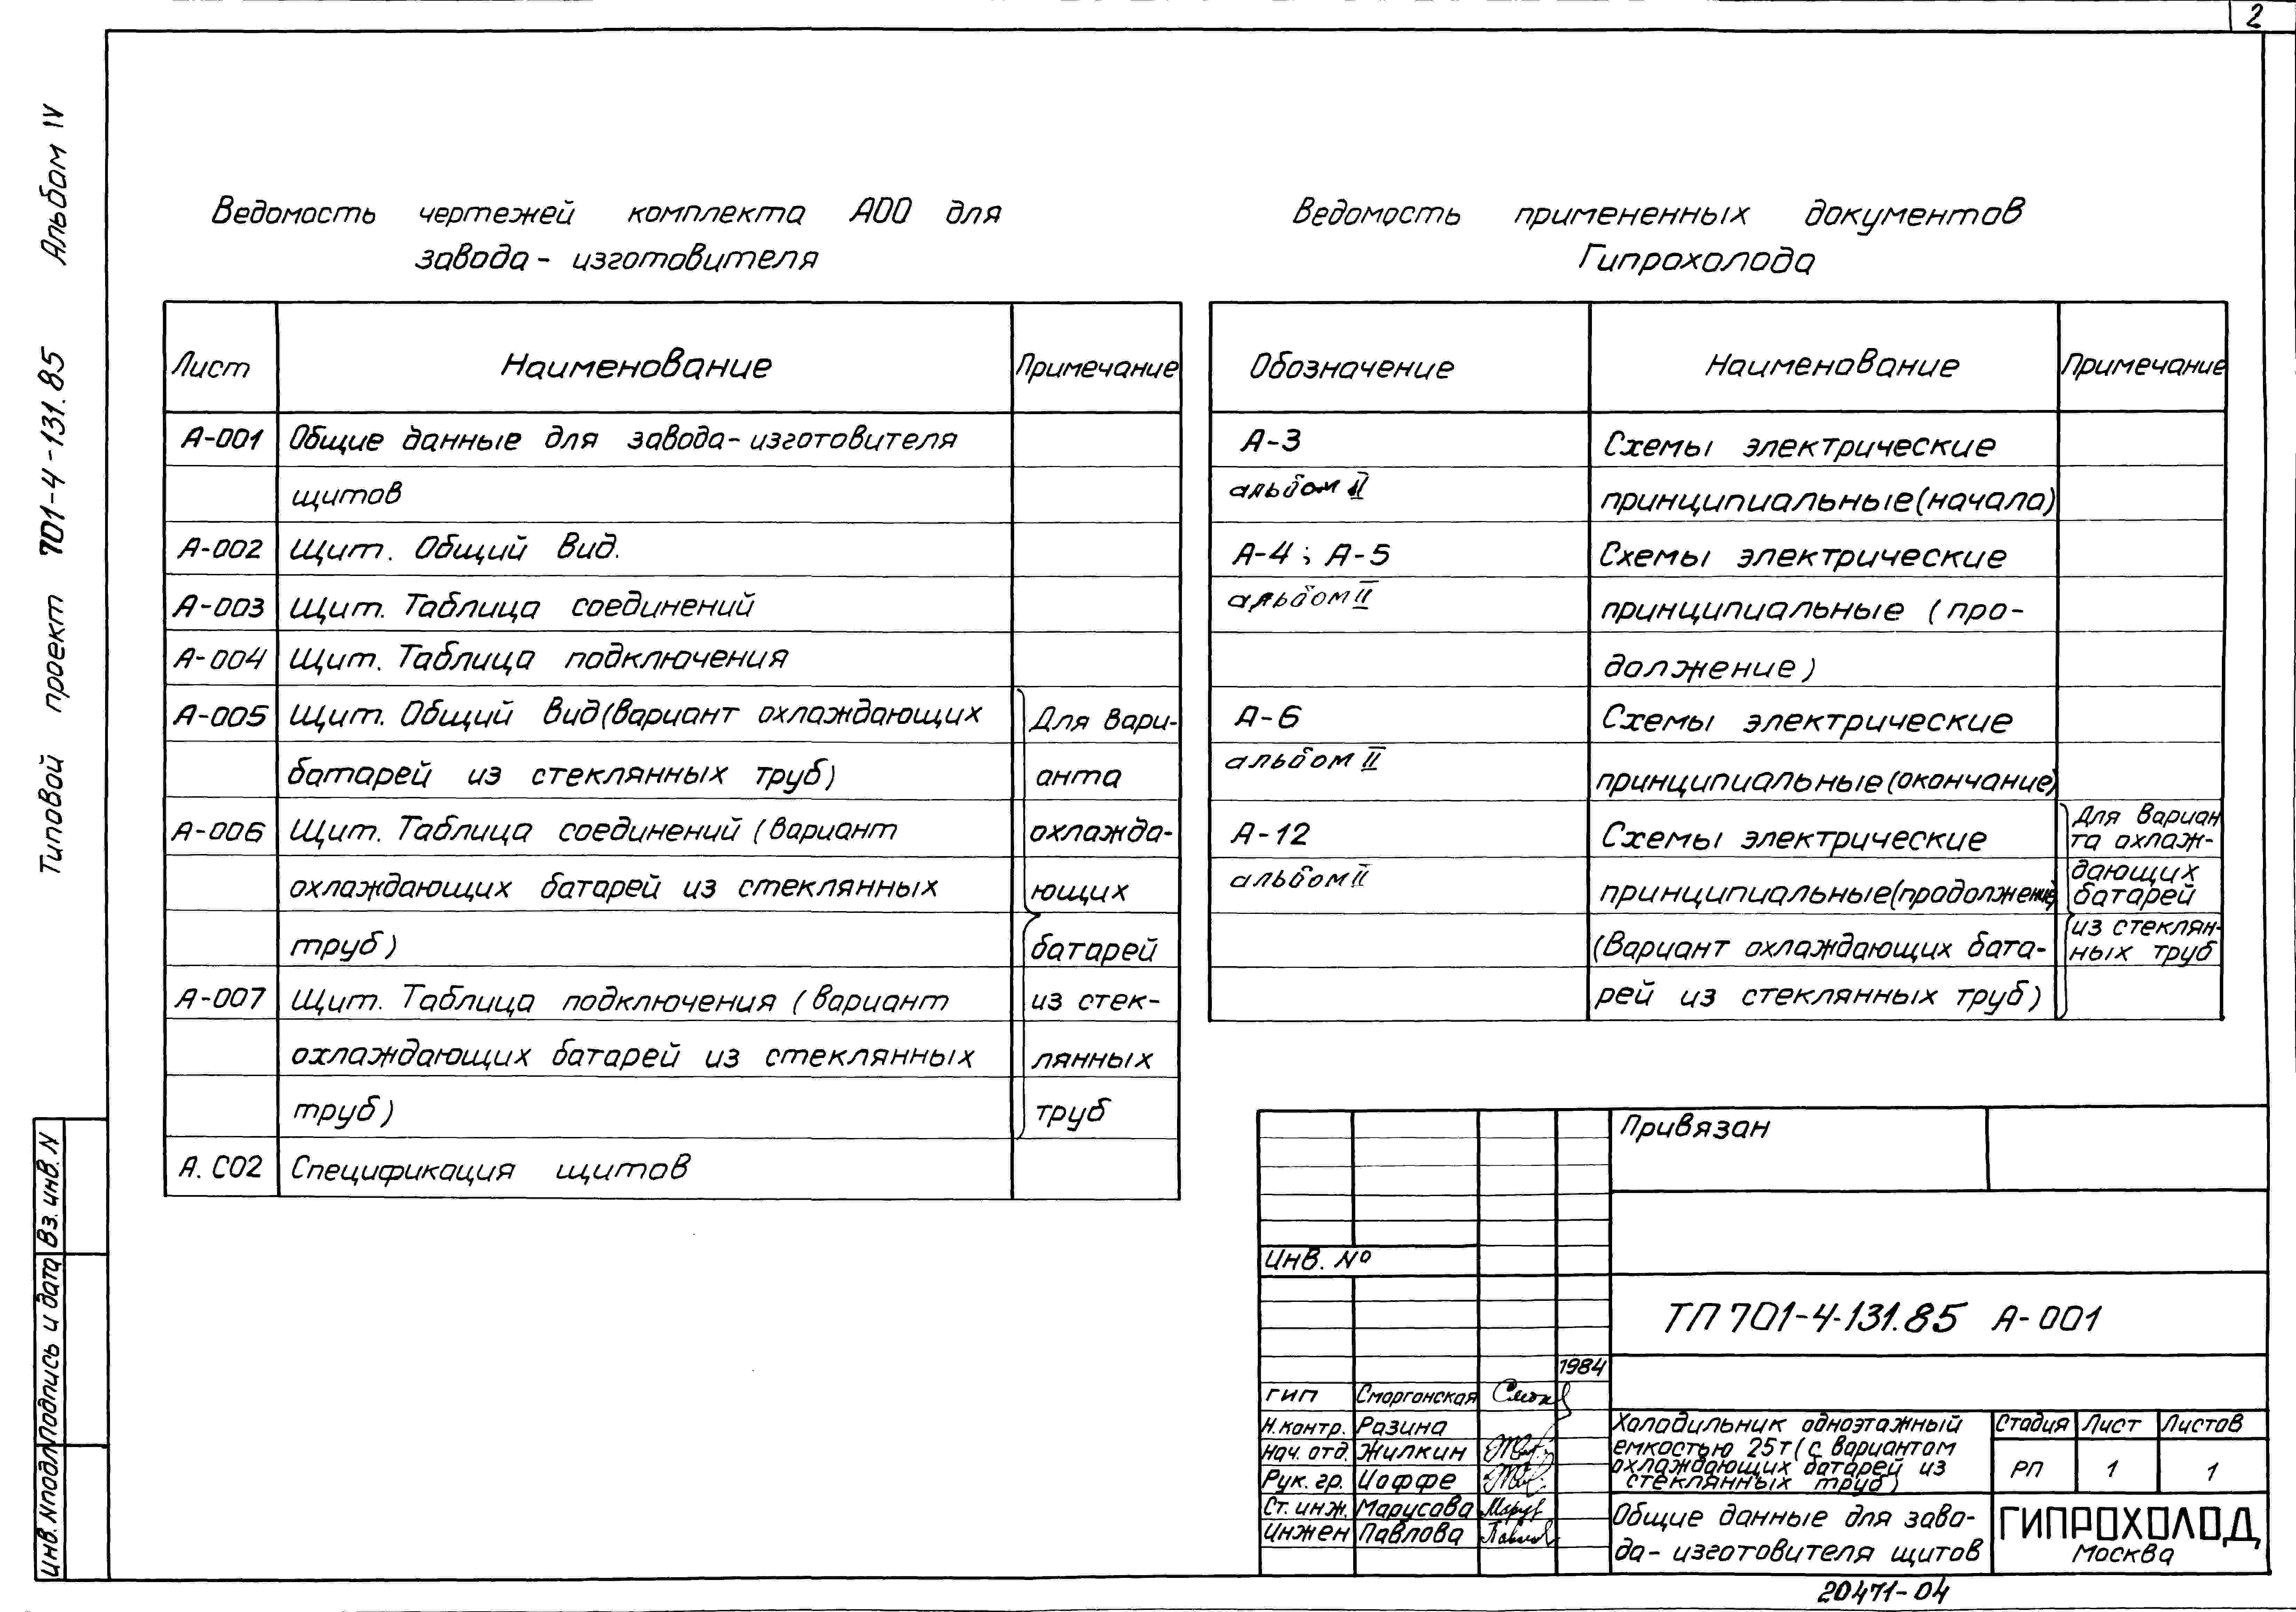 2
Типовой проект 701-4-131.85 Альбом IV
Ведомость чертежей комплекта А00 для
завода - изготовителя
Лист Наименование Примечание
А-001 Общие данные для завода-изготовителя
щитов
А-002 Щит. Общий вид.
А-003 Щит. Таблица соединений
А-004 Щит. Таблица подключения
А-005 Щит. Общий вид (вариант охлаждающих Для вари-
батарей из стеклянных труб) анта
А-006 Щит. Таблица соединений (вариант охлажда-
охлаждающих батарей из стеклянных ющих
труб) батарей
А-007 Щит. Таблица подключения (вариант из стек-
охлаждающих батарей из стеклянных лянных
труб) труб
А.С02 Спецификация щитов
Ведомость примененных документов
Гипрохолода
Обозначение Наименование Примечание
А-3 Схемы электрические
альбом II принципиальные (начала)
А-4; А-5 Схемы электрические
альбом II принципиальные (про-
должение)
А-6 Схемы электрические
альбом II принципиальные (окончание)
А-12 Схемы электрические
альбом II принципиальные (продолжение)
(Вариант охлаждающих бата-
рей из стеклянных труб)
Для вариан
та охлаж-
дающих
батарей
из стеклян-
ных труб
Привязан
Инв. №
ТП 701-4-131.85 А-001
1984
ГИП Сморгонская
Н.контр. Разина
Нач. отд. Жилкин
Рук. гр. Иоффе
Ст. инж. Марусова
Инжен Павлова
Холодильник одноэтажный
емкостью 25т (с вариантом
охлаждающих батарей из
стеклянных труб)
Стадия Лист Листов
РП 1 1
Общие данные для заво-
да - изготовителя щитов
ГИПРОХОЛОД
Москва
20471-04
Инв. N подл Подпись и дата Вз. инв. N